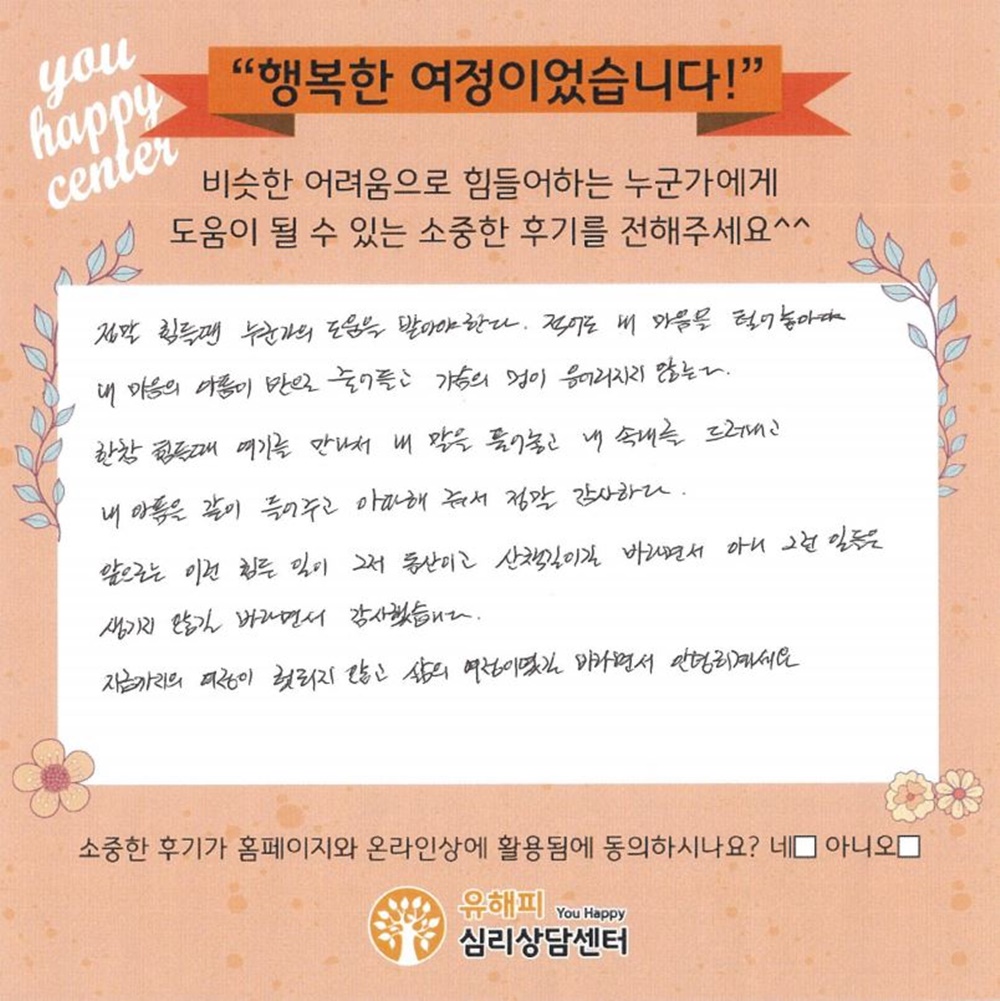 you
happy
center
“행복한 여정이었습니다!”
비슷한 어려움으로 힘들어하는 누군가에게
도움이 될 수 있는 소중한 후기를 전해주세요^^
정말 힘들땐 누군가의 도움을 받아야한다. 적어도 내 마음을 털어놓아야
내 마음의 아픔이 반으로 줄어들고 가슴의 멍이 응어리지지 않는다.
한참 힘들때 여기를 만나서 내 말을 풀어놓고 내 속내를 드러내고
내 아픔을 같이 들어주고 아파해 줘서 정말 감사하다.
앞으로는 이런 힘든 일이 그저 동산이고 산책길이길 바라면서 아니 그런 일들은
생기지 않길 바라면서 감사했습니다.
지금까지의 여정이 헛되지 않고 삶의 여정이였길 바라면서 안녕히계세요
소중한 후기가 홈페이지와 온라인상에 활용됨에 동의하시나요? 네□ 아니오□
유해피 You Happy
심리상담센터